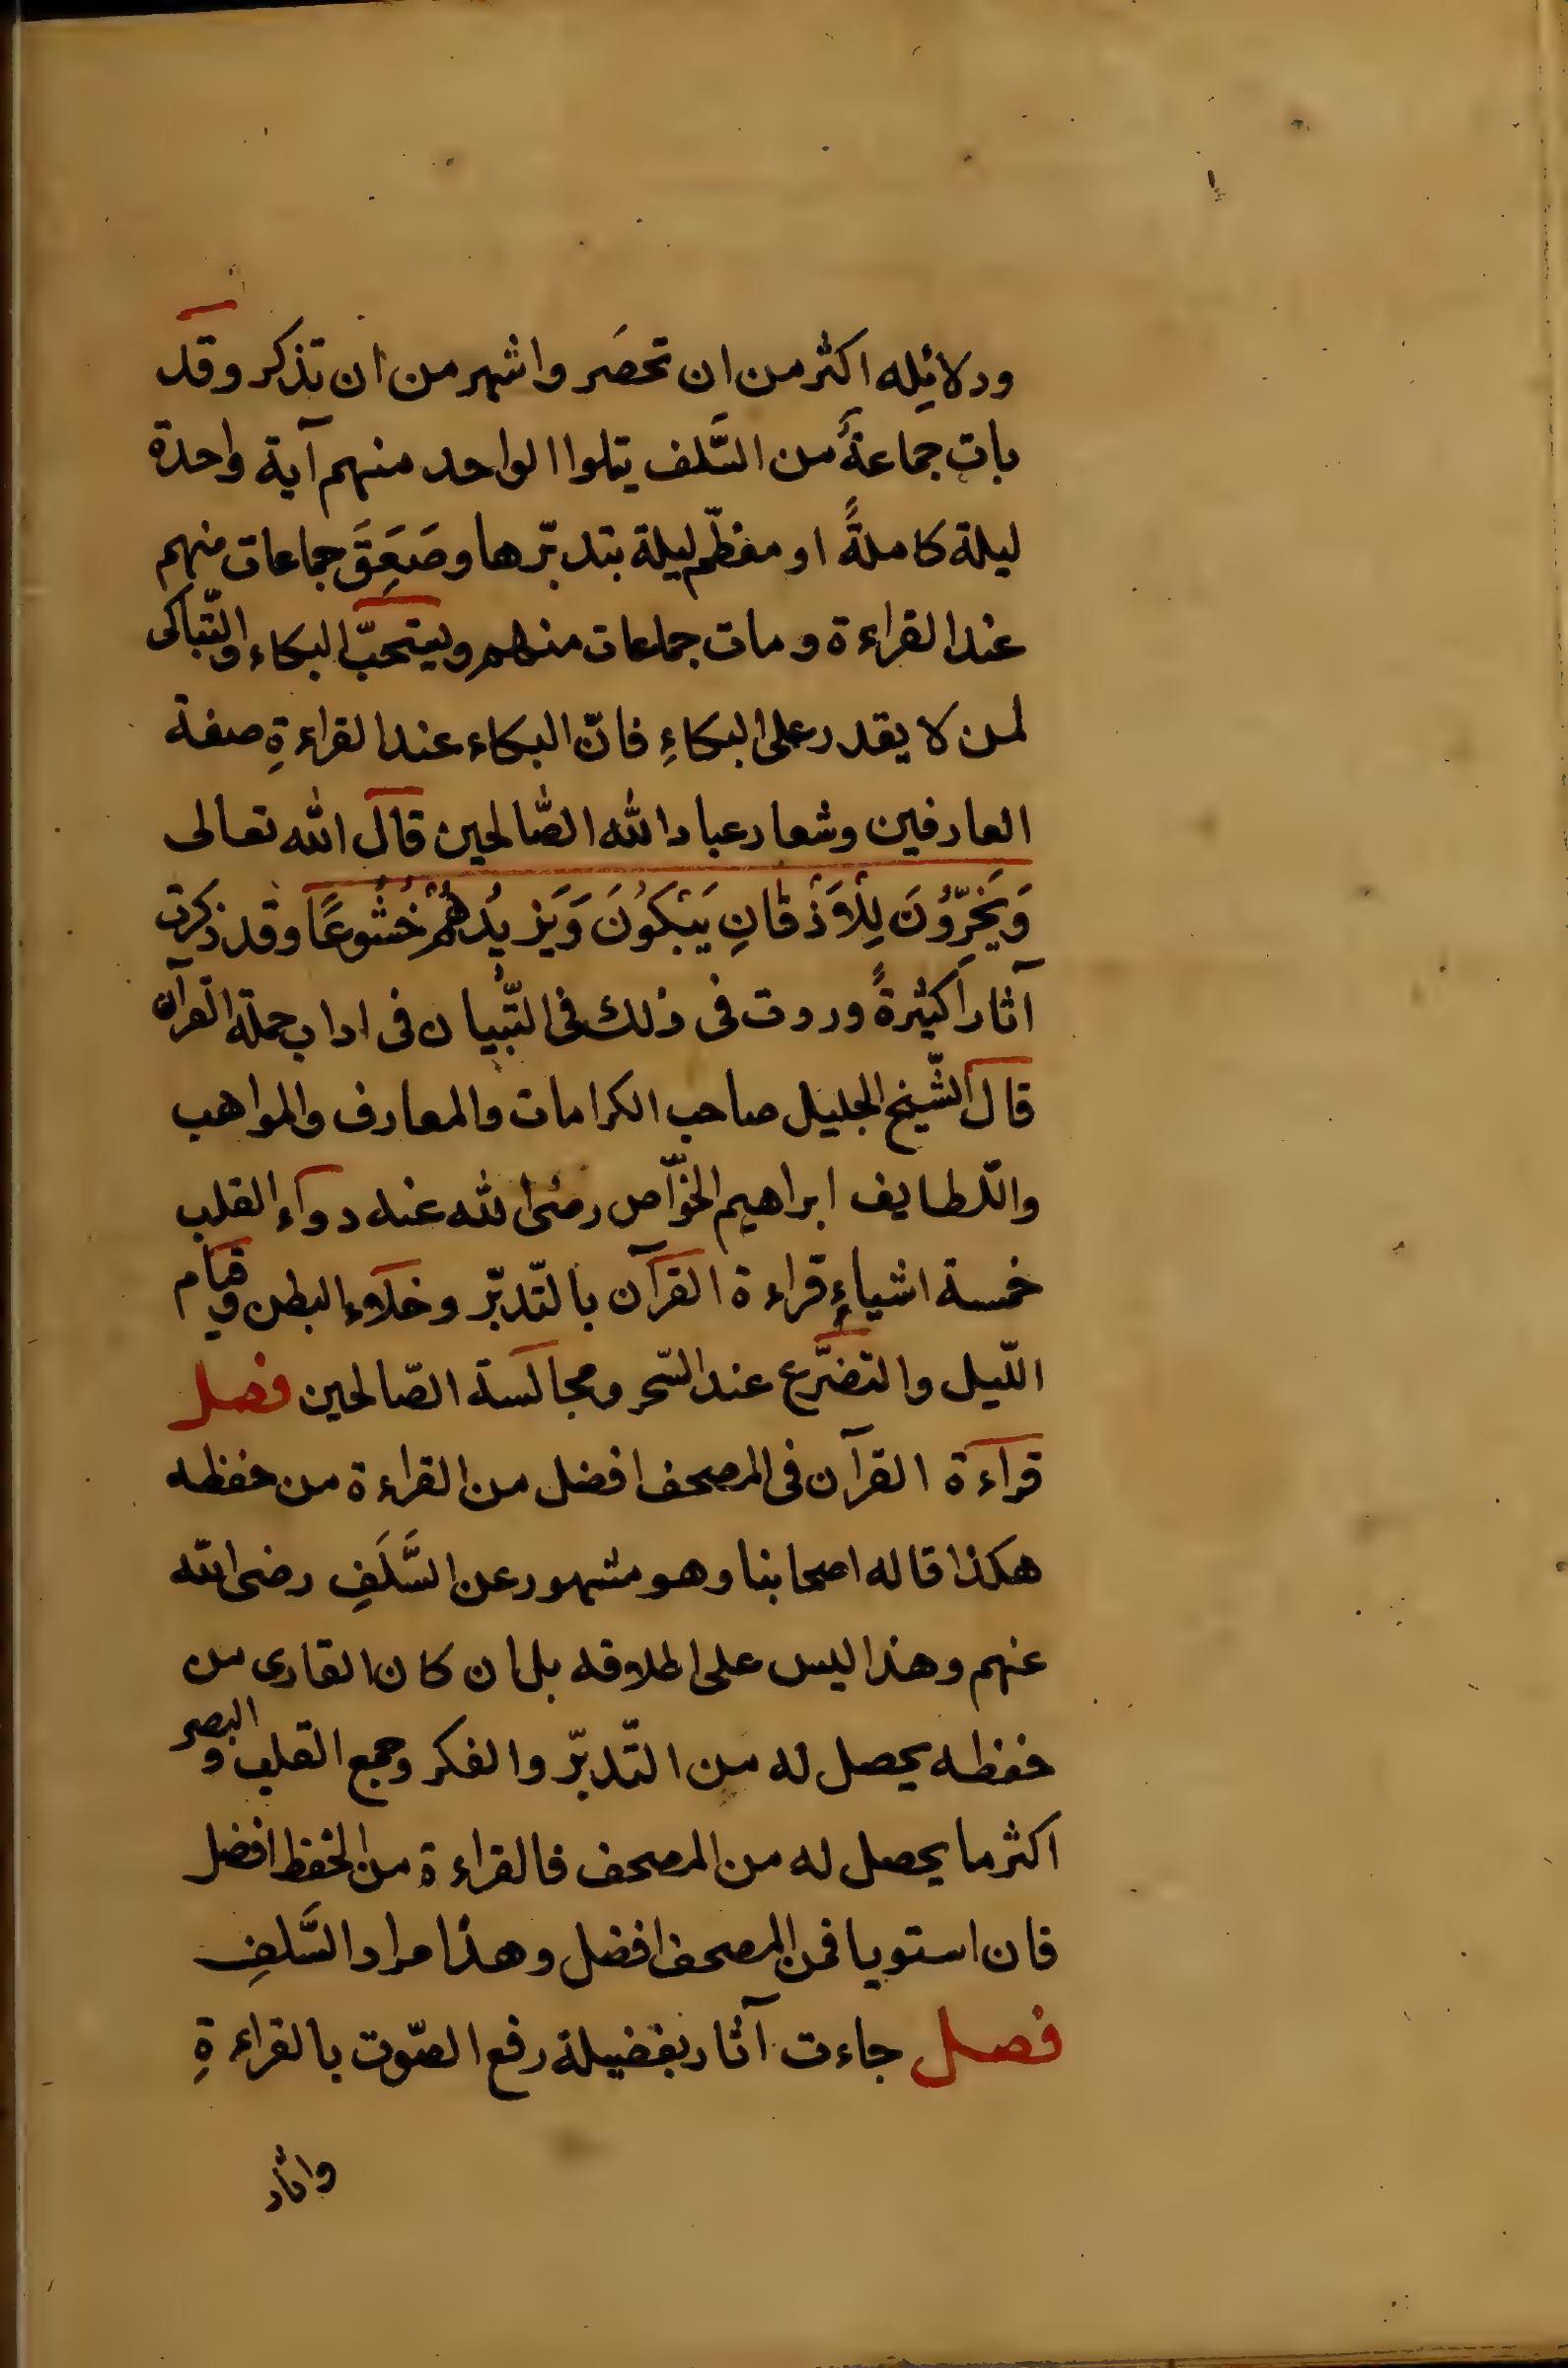 ودلائله اكثر من ان تحصَر واشهر من ان تذكر وقد
بات جماعةٌ من السَّلف يتلوا الواحد منهم آية واحدة
ليلة كاملةً او معظّم ليلة بتدبّرها وصَعِقَ جماعات منهم
عند القراءة ومات جماعات منهم ويستحبّ البكاء والتّباكى
لمن لا يقدر على البكاءِ فانّ البكاء عند القراءةِ صفة
العارفين وشعار عباد الله الصّالحين قال الله تعالى
وَيَخِرُّونَ لِلْاَذْقَانِ يَبْكُونَ وَيَزِيدُهُمْ خُشُوعًا وقد ذكرت
آثاراً كثيرةً وردت فى ذلك فى التّبيان فى اداب حملة القرآن
قال الشّيخ الجليل صاحب الكرامات والمعارف والمواهب
واللّطايف ابراهيم الخوّاص رضى الله عنه دواء القلب
خمسة اشياءٍ قراءة القرآن بالتّدبّر وخلاء البطن وقيام
اللّيل والتضرّع عند السّحر ومجالسة الصّالحين فصل
قراءة القرآن فى المصحف افضل من القراءة من حفظه
هكذا قاله اصحابنا وهو مشهور عن السَّلَفِ رضى الله
عنهم وهذا ليس على اطلاقه بل ان كان القارى من
حفظه يحصل له من التّدبّر والفكر وجمع القلب والبصر
اكثر ما يحصل له من المصحف فالقراءة من الحفظ افضل
فان استويا فمن المصحف افضل وهذا مراد السَّلفِ
فصل جاءت آثار بفضيلة رفع الصّوت بالقراءةِ
واثار